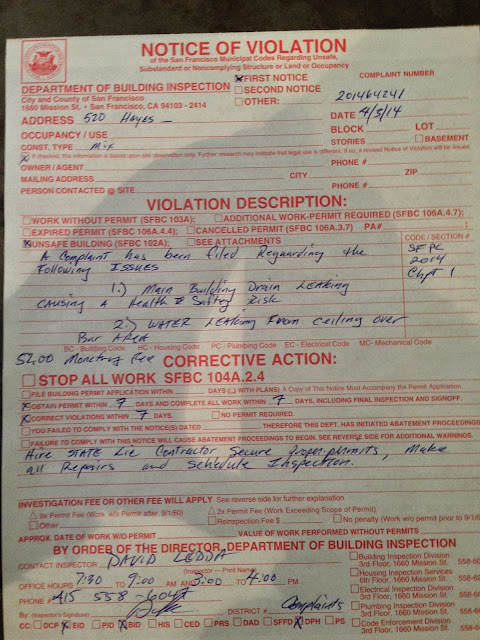 NOTICE OF VIOLATION
of the San Francisco Municipal Codes Regarding Unsafe,
Substandard or Noncomplying Structure or Land or Occupancy
DEPARTMENT OF BUILDING INSPECTION
City and County of San Francisco
1660 Mission St. • San Francisco, CA 94103 - 2414
FIRST NOTICE
SECOND NOTICE
OTHER:
COMPLAINT NUMBER
201464241
ADDRESS 520 Hayes
DATE 4/5/14
OCCUPANCY / USE
BLOCK LOT
CONST. TYPE Mix
STORIES BASEMENT
If checked, this information is based upon site observation only. Further research may indicate that legal use is different. If so, a revised Notice of Violation will be issued.
OWNER / AGENT PHONE #
MAILING ADDRESS CITY ZIP
PERSON CONTACTED @ SITE PHONE #
VIOLATION DESCRIPTION:
WORK WITHOUT PERMIT (SFBC 103A); ADDITIONAL WORK-PERMIT REQUIRED (SFBC 106A.4.7);
EXPIRED PERMIT (SFBC 106A.4.4); CANCELLED PERMIT (SFBC 106A.3.7) PA#
UNSAFE BUILDING (SFBC 102A); SEE ATTACHMENTS
CODE / SECTION #
A Complaint has been filed Reguarding the
Following Issues
SFPC
2014
Chpt 1
1.) Main Building Drain Leaking
causing a Health & Saftey Risk
2.) WATER Leaking From ceiling over
Bar AREA
BC - Building Code HC - Housing Code PC - Plumbing Code EC - Electrical Code MC- Mechanical Code
52.00 Monetory Fee
CORRECTIVE ACTION:
STOP ALL WORK SFBC 104A.2.4
FILE BUILDING PERMIT APPLICATION WITHIN DAYS ( WITH PLANS) A Copy of This Notice Must Accompany the Permit Application.
OBTAIN PERMIT WITHIN 7 DAYS AND COMPLETE ALL WORK WITHIN 7 DAYS, INCLUDING FINAL INSPECTION AND SIGNOFF.
CORRECT VIOLATIONS WITHIN 7 DAYS. NO PERMIT REQUIRED.
YOU FAILED TO COMPLY WITH THE NOTICE(S) DATED , THEREFORE THIS DEPT. HAS INITIATED ABATEMENT PROCEEDINGS
FAILURE TO COMPLY WITH THIS NOTICE WILL CAUSE ABATEMENT PROCEEDINGS TO BEGIN. SEE REVERSE SIDE FOR ADDITIONAL WARNINGS.
Hire STATE Lic Contractor Secure proper permits, Make
all Repairs and Schedule Inspection.
INVESTIGATION FEE OR OTHER FEE WILL APPLY See reverse side for further explanation
9x Permit Fee (Work w/o Permit after 9/1/60) 2x Permit Fee (Work Exceeding Scope of Permit)
Other Reinspection Fee $ No penalty (Work w/o permit prior to 9/1/6
APPROX. DATE OF WORK W/O PERMIT VALUE OF WORK PERFORMED WITHOUT PERMITS
BY ORDER OF THE DIRECTOR, DEPARTMENT OF BUILDING INSPECTION
CONTACT INSPECTOR DAVID LEDDA
Inspector — Print Name
OFFICE HOURS 7:30 TO 9:00 AM AND 3:00 TO 4:00 PM
PHONE # 415 558-
By: (Inspector's Signature)
DISTRICT # Complaints
CC: DCP EID PID BID HIS CED PRS DAD SFFD DPH PS
Building Inspection Division
3rd Floor, 1660 Mission St. 558-60
Housing Inspection Services
6th Floor, 1660 Mission St. 558-62
Electrical Inspection Division
3rd Floor, 1660 Mission St. 558-60
Plumbing Inspection Division
3rd Floor, 1660 Mission St. 558-60
Code Enforcement Division
3rd Floor, 1660 Mission St.